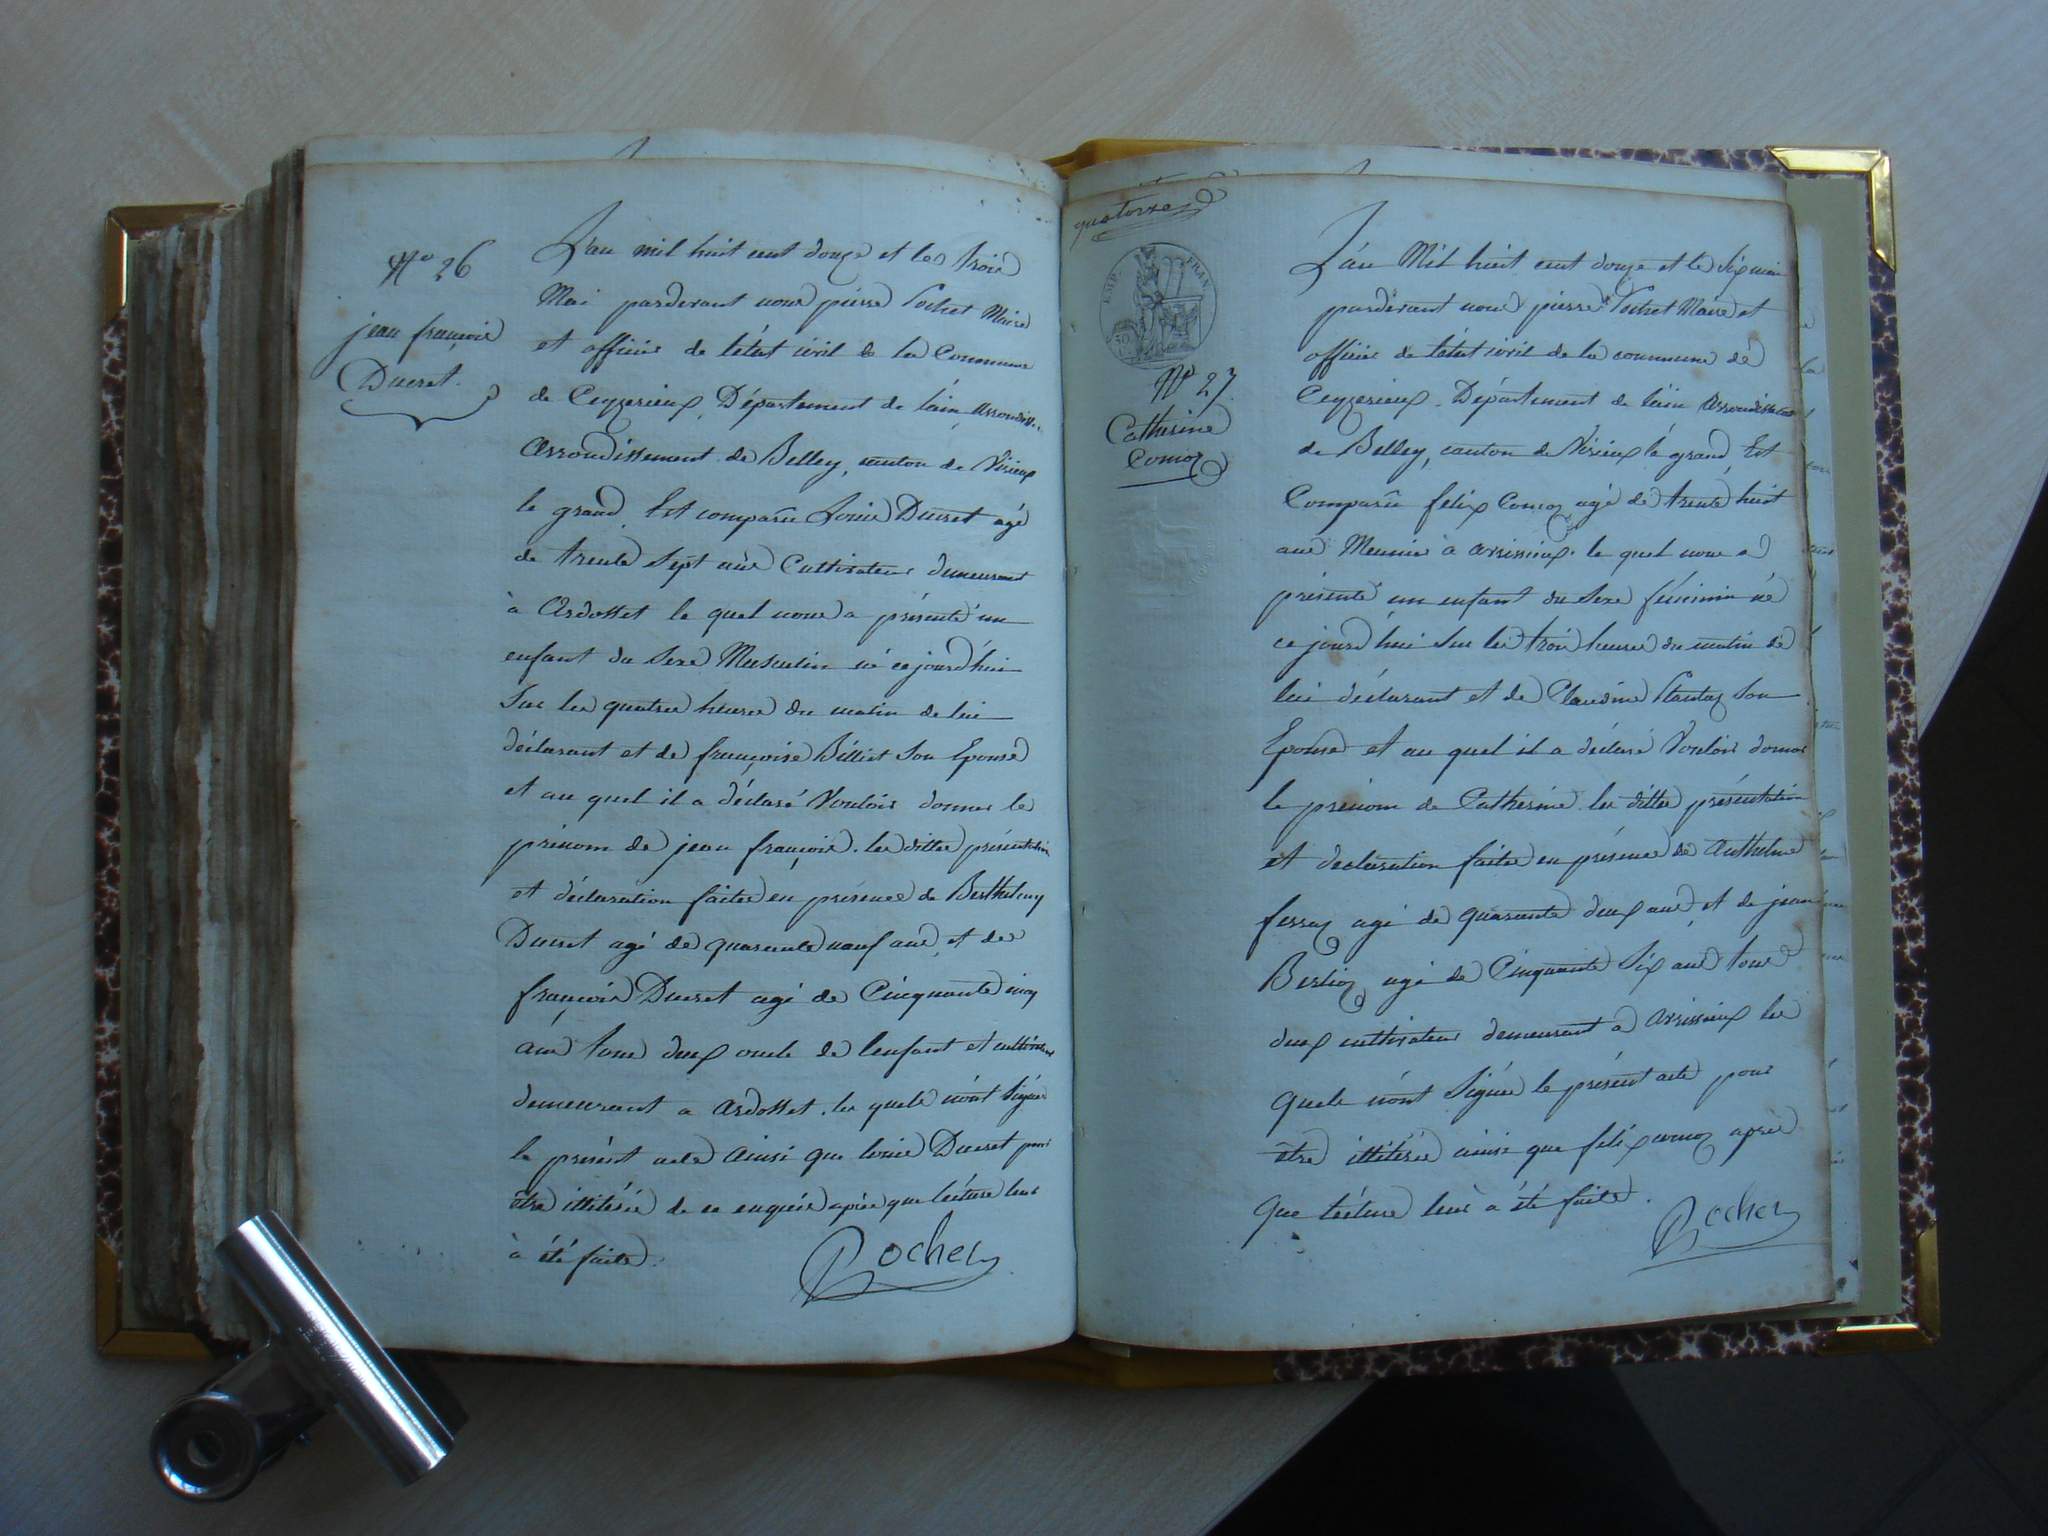 N° 26
jean françois
Ducret.
L'an mil huit cent douze et le trois
Mai pardevant nous pierre Pochet Maire
et officier de l'état civil de la Commune
de Ceyzerieux, Département de l'ain, arrondis..
Arrondissement de Belley, canton de Virieux
le grand, Est comparu Louis Ducret agé
de trente sept ans Cultivateur demeurant
à Ardosset le quel nous a présenté un
enfant du Sexe Masculin né cejourd'hui
Sur les quatres heures du matin de lui
déclarant et de françoise Billiet Son Epouse
et au quel il a déclaré Vouloir donner le
prénom de jean françois. les dittes présentation
et déclaration faites en présence de Berthelemy
Ducret agé de quarante neuf ans, et de
françois Ducret agé de Cinquante cinq
ans tous deux oncle de l'enfant et cultivateurs
demeurant a Ardosset. les quels n'ont Signés
le présent acte Ainsi que louis Ducret pour
être illitérés de ce enquis après que lecture leur
à été faite.
Pochet
quatorze
EMP. FRAN.
N° 27.
Catherine
Comoz
L'an Mil huit cent douze et le Six mai
pardevant nous pierre Pochet Maire et
officier de l'état civil de la commune de
Ceyzerieux, Département de l'ain Arrondissement
de Belley, canton de Virieux le grand, Est
Comparu felix Comoz agé de trente huit
ans Meunier à Avrissieux. le quel nous a
présenté un enfant du Sexe féminin né
ce jourd'hui Sur les trois heures du matin de
lui déclarant et de Claudine Son
Epouse et au quel il a déclaré Vouloir donner
le prénom de Catherine. les dittes présentation
et declaration faites en présence de Anthelme
ferraz agé de quarante deux ans, et de jean
Berlioz agé de Cinquante Six ans tous
deux cultivateurs demeurant a Avrissieux les
quels n'ont Signés le présent acte pour
être illitérés ainsi que felix comoz après
Que lecture leur à été faite.
Pochet